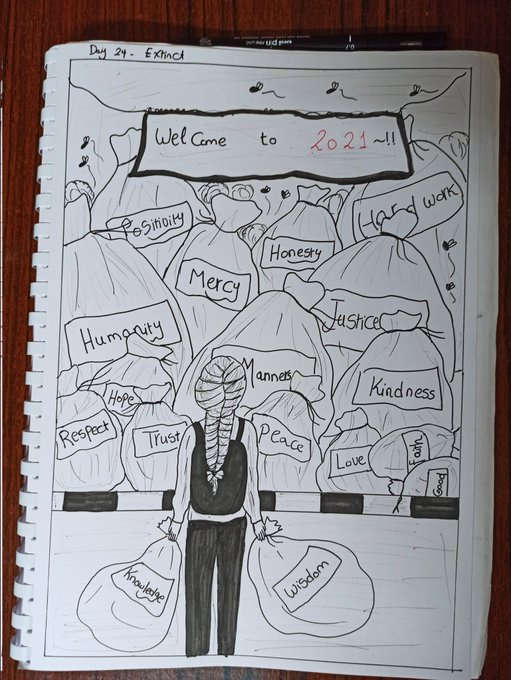 Day 24 - Extinct
Welcome to 2021~!!
Positivity
Hard work
Honesty
Mercy
Humanity
Justice
Manners
Kindness
Hope
Respect
Trust
Peace
Love
Faith
Good
Knowledge
Wisdom